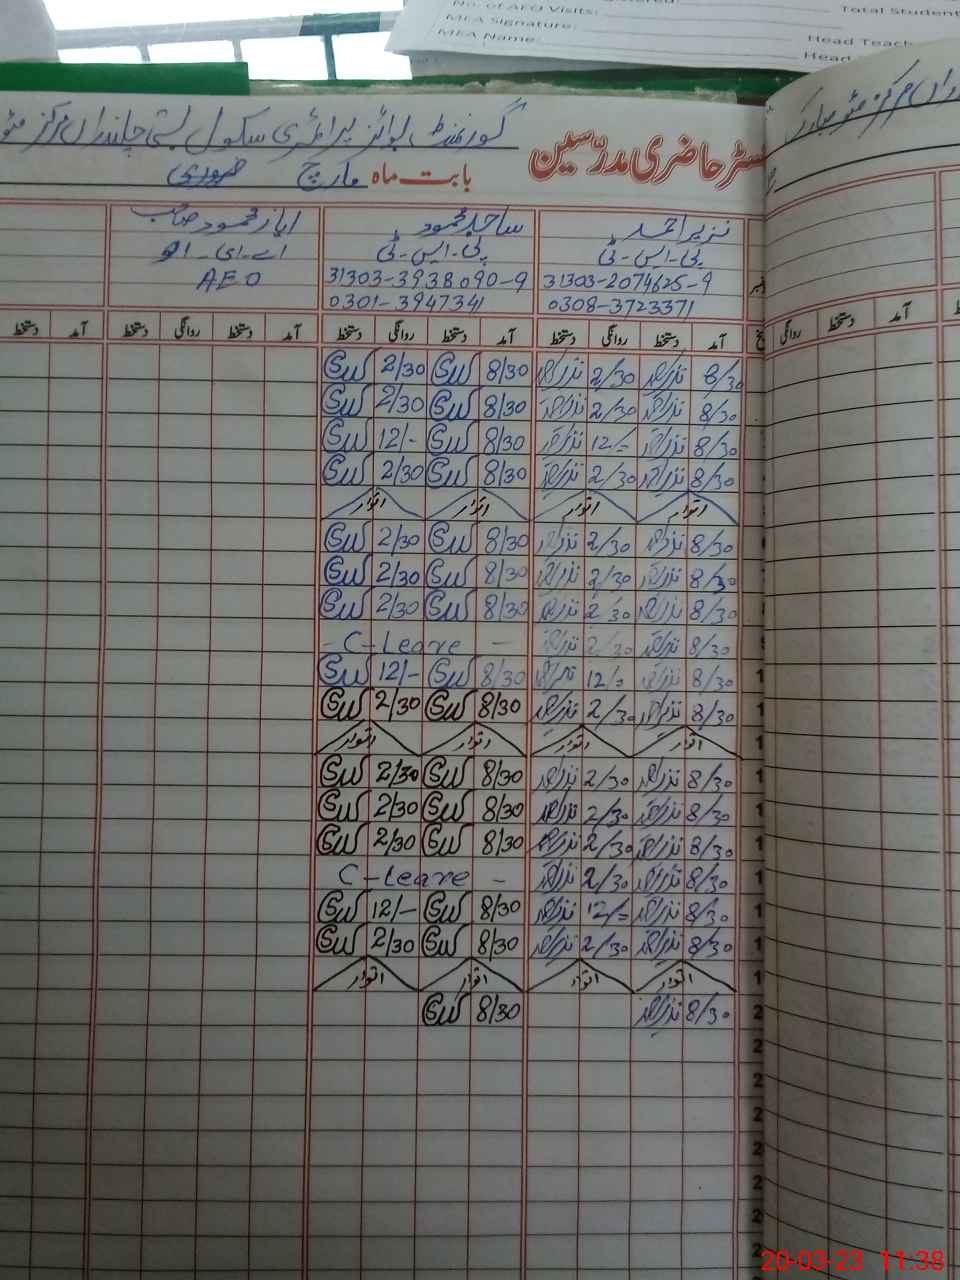 No. of AEO Visits: Total Student
MEA Signature:
MEA Name: Head Teach
Head
گورنمنٹ بوائز پرائمری سکول بستی چاندراں مرکز
حاضری مدرسین
بابت ماہ مارچ
نذیر احمد ساجد محمود ایاز محمود صاحب
پی-ایس-ٹی پی-ایس-ٹی اے-ای-او
31303-2074625-9 31303-3938090-9 AEO
0308-3723371 0301-3947341
آمد دستخط روانگی دستخط آمد دستخط روانگی دستخط آمد دستخط روانگی دستخط آمد دستخط
8/30 نذیر احمد 2/30 نذیر احمد 8/30 2/30
8/30 نذیر احمد 2/30 نذیر احمد 8/30 2/30
8/30 نذیر احمد 12/- نذیر احمد 8/30 12/-
8/30 نذیر احمد 2/30 نذیر احمد 8/30 2/30
اتوار اتوار اتوار اتوار
8/30 نذیر احمد 2/30 نذیر احمد 8/30 2/30
8/30 نذیر احمد 2/30 نذیر احمد 8/30 2/30
8/30 نذیر احمد 2/30 نذیر احمد 8/30 2/30
8/30 نذیر احمد 2/30 نذیر احمد - C-Leave -
8/30 نذیر احمد 12/- نذیر احمد 8/30 12/-
8/30 نذیر احمد 2/30 نذیر احمد 8/30 2/30
اتوار اتوار اتوار اتوار
8/30 نذیر احمد 2/30 نذیر احمد 8/30 2/30
8/30 نذیر احمد 2/30 نذیر احمد 8/30 2/30
8/30 نذیر احمد 2/30 نذیر احمد 8/30 2/30
8/30 نذیر احمد 2/30 نذیر احمد C-Leave -
8/30 نذیر احمد 12/- نذیر احمد 8/30 12/-
8/30 نذیر احمد 2/30 نذیر احمد 8/30 2/30
اتوار اتوار اتوار اتوار
8/30 نذیر احمد 8/30
20-03-23 11:38